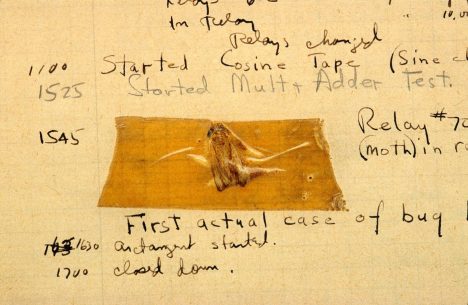 Relays
in relay
Relays changed
1100 Started Cosine Tape (Sine
1525 Started Mult + Adder Test.
1545 Relay #70
(moth) in
First actual case of bug
1630 arctangent started.
1700 closed down.